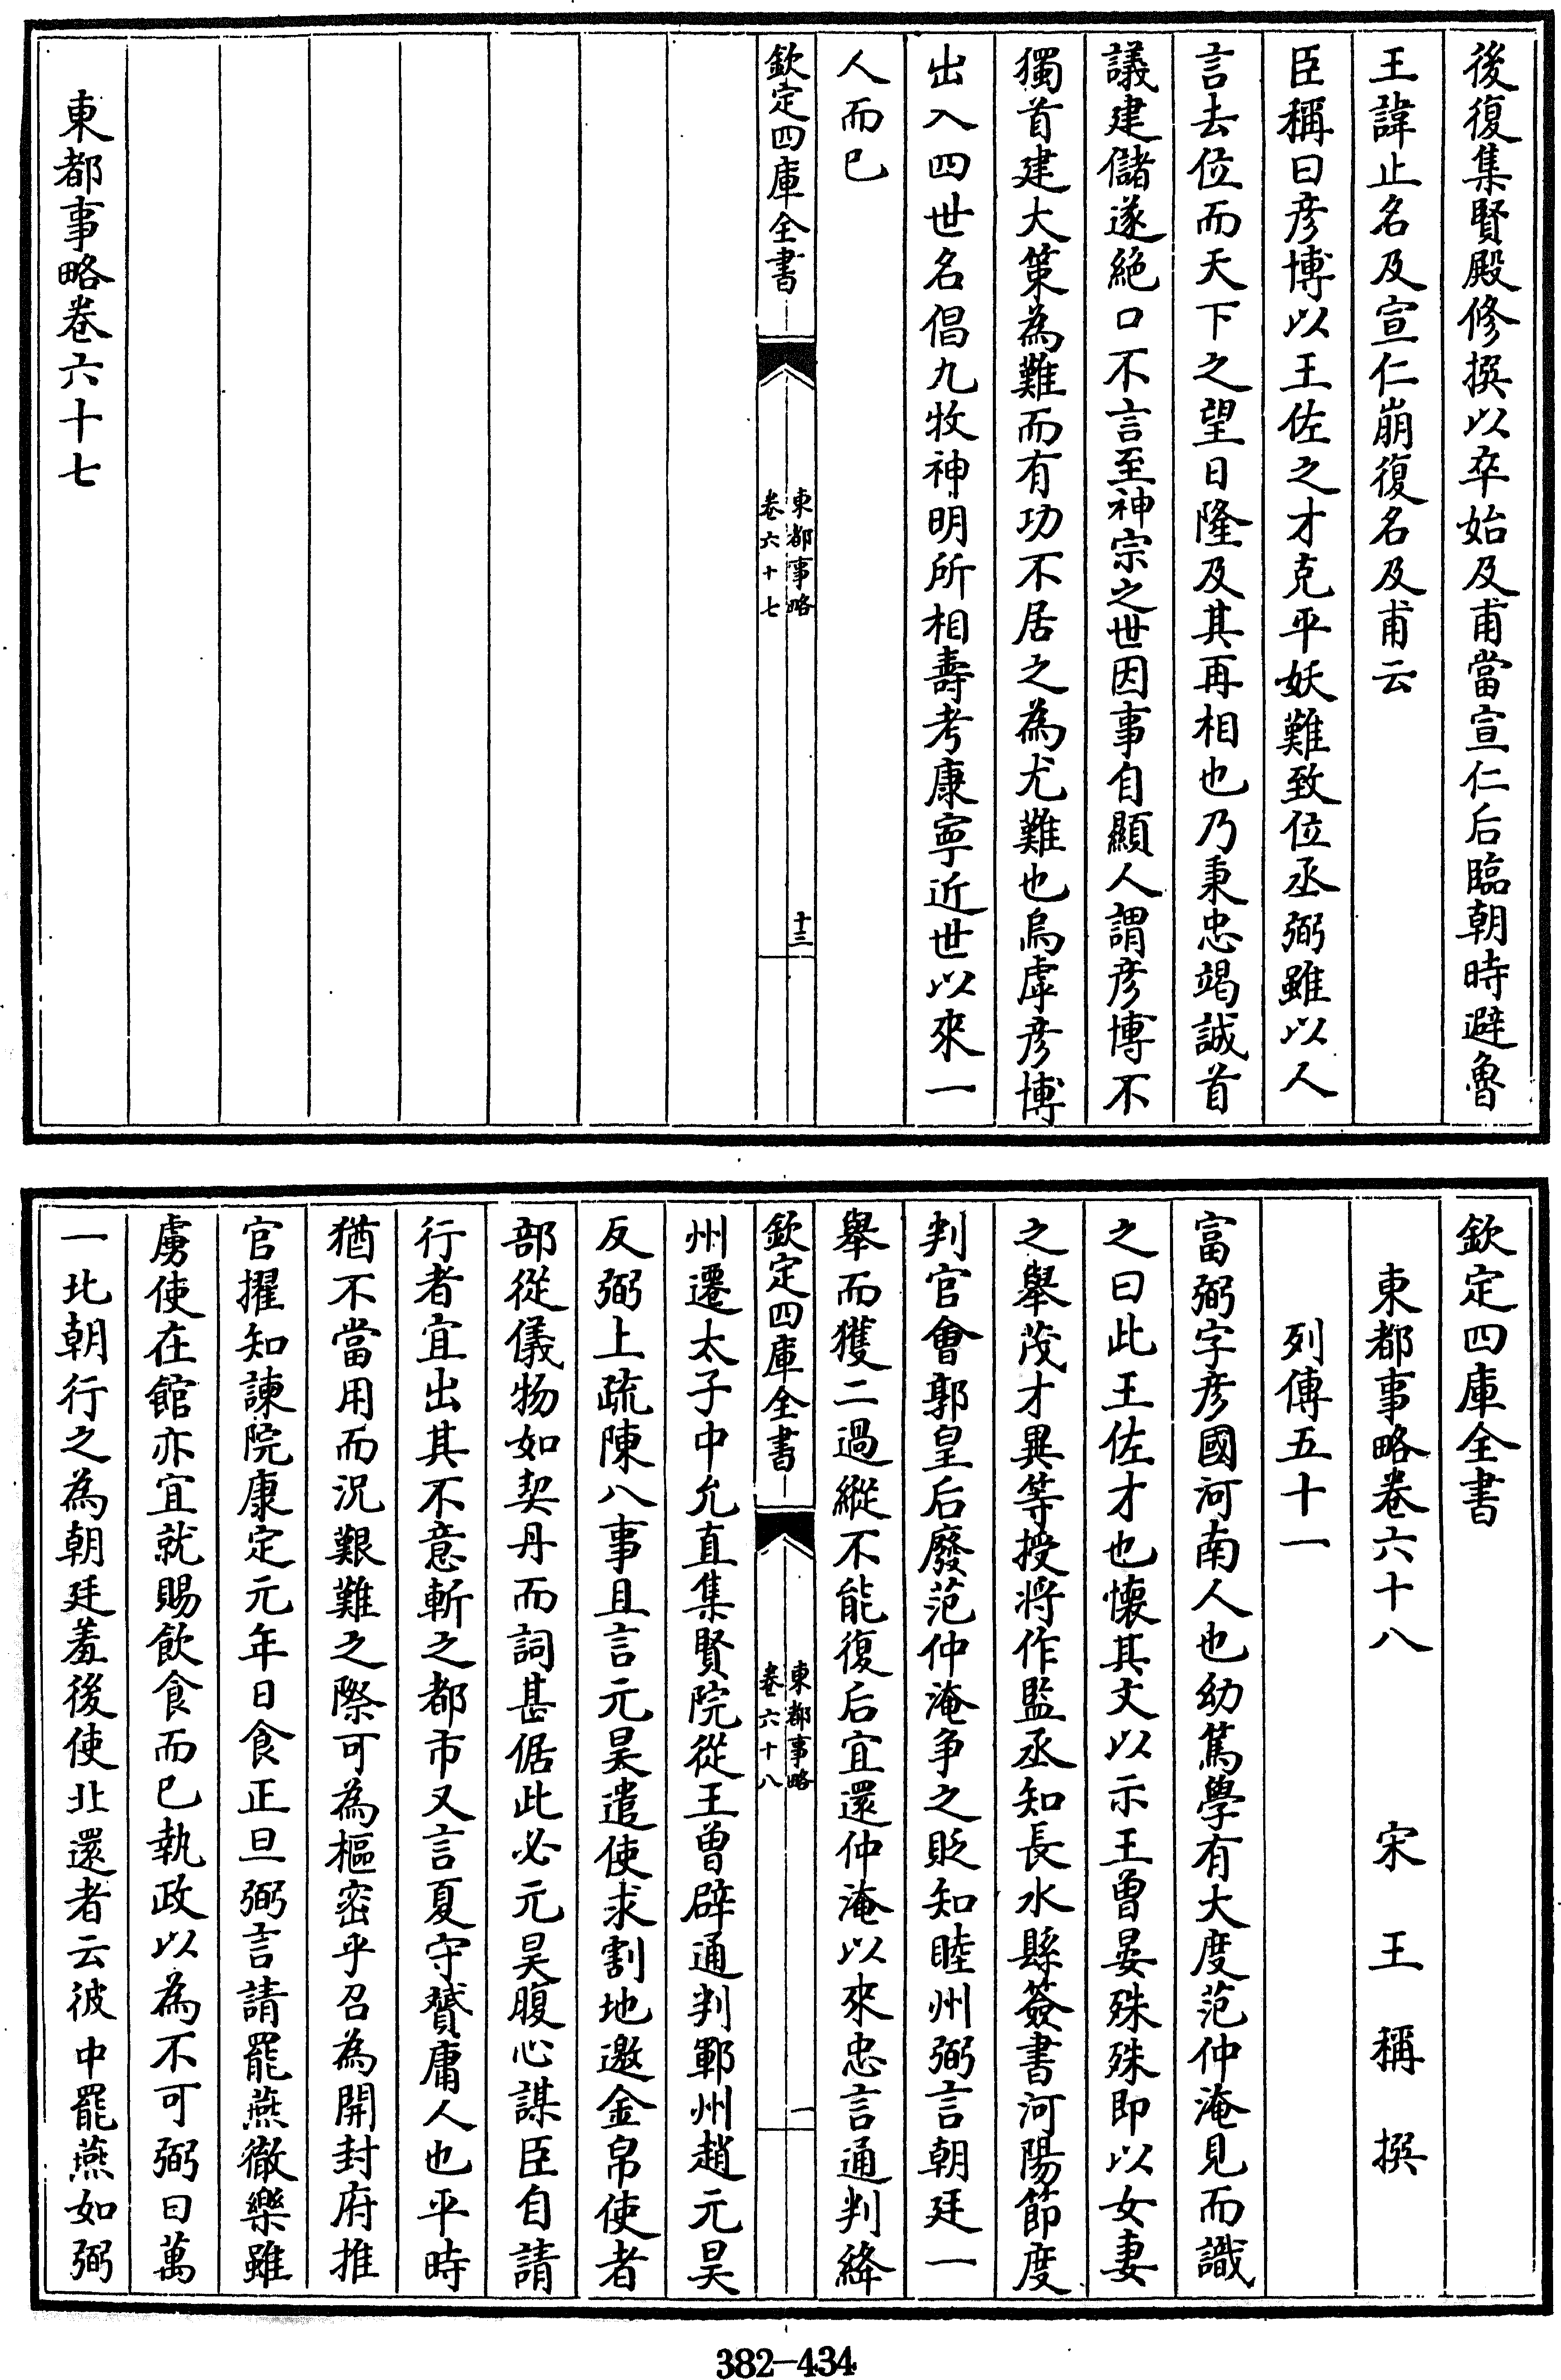 後復集賢殿修撰以卒始及甫當宣仁后臨朝時避魯
王諱止名及宣仁崩復名及甫云
臣稱曰彦博以王佐之才克平妖難致位丞弼雖以人
言去位而天下之望日隆及其再相也乃秉忠竭誠首
議建儲遂絶口不言至神宗之世因事自顯人謂彦博不
獨首建大策為難而有功不居之為尤難也烏虖彦博
出入四世名倡九牧神明所相壽考康寧近世以來一
人而已
欽定四庫全書
東都事略
卷六十七
十三
東都事略卷六十七
欽定四庫全書
東都事略卷六十八
宋王稱撰
列傳五十一
富弼字彦國河南人也幼篤學有大度范仲淹見而識
之曰此王佐才也懐其文以示王曾晏殊殊即以女妻
之舉茂才異等授將作監丞知長水縣簽書河陽節度
判官會郭皇后廢范仲淹争之貶知睦州弼言朝廷一
舉而獲二過縱不能復后宜還仲淹以來忠言通判絳
欽定四庫全書
東都事略
卷六十八
一
州遷太子中允直集賢院從王曾辟通判鄆州趙元昊
反弼上疏陳八事且言元昊遣使求割地邀金帛使者
部從儀物如契丹而詞甚倨此必元昊腹心謀臣自請
行者宜出其不意斬之都市又言夏守贇庸人也平時
猶不當用而況艱難之際可為樞密乎召為開封府推
官擢知諫院康定元年日食正旦弼言請罷燕徹樂雖
虜使在館亦宜就賜飲食而已執政以為不可弼曰萬
一北朝行之為朝廷羞後使北還者云彼中罷燕如弼
382-434